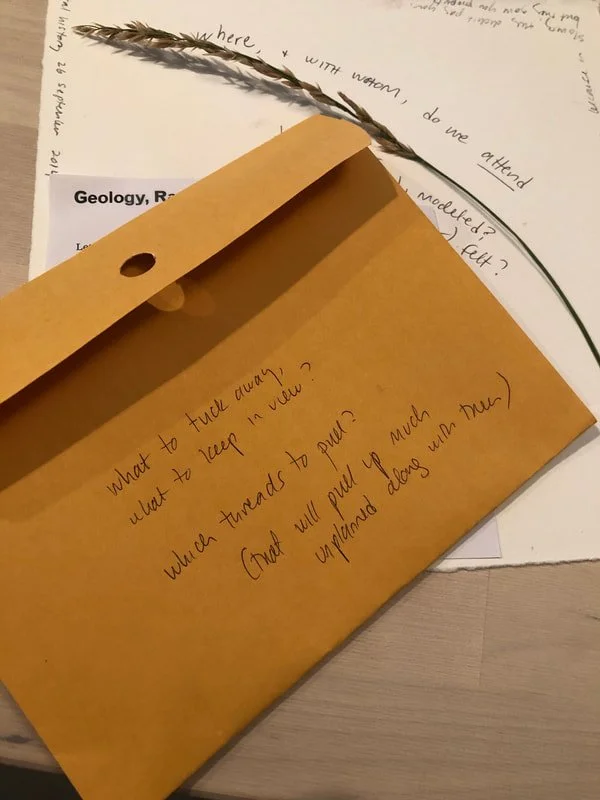 where, + with whom, do we attend
modeled?
felt?
Geology, Ra
what to tuck away,
what to keep in view?
which threads to pull?
(that will pull up much
unplanned along with them)
al history 26 September 201